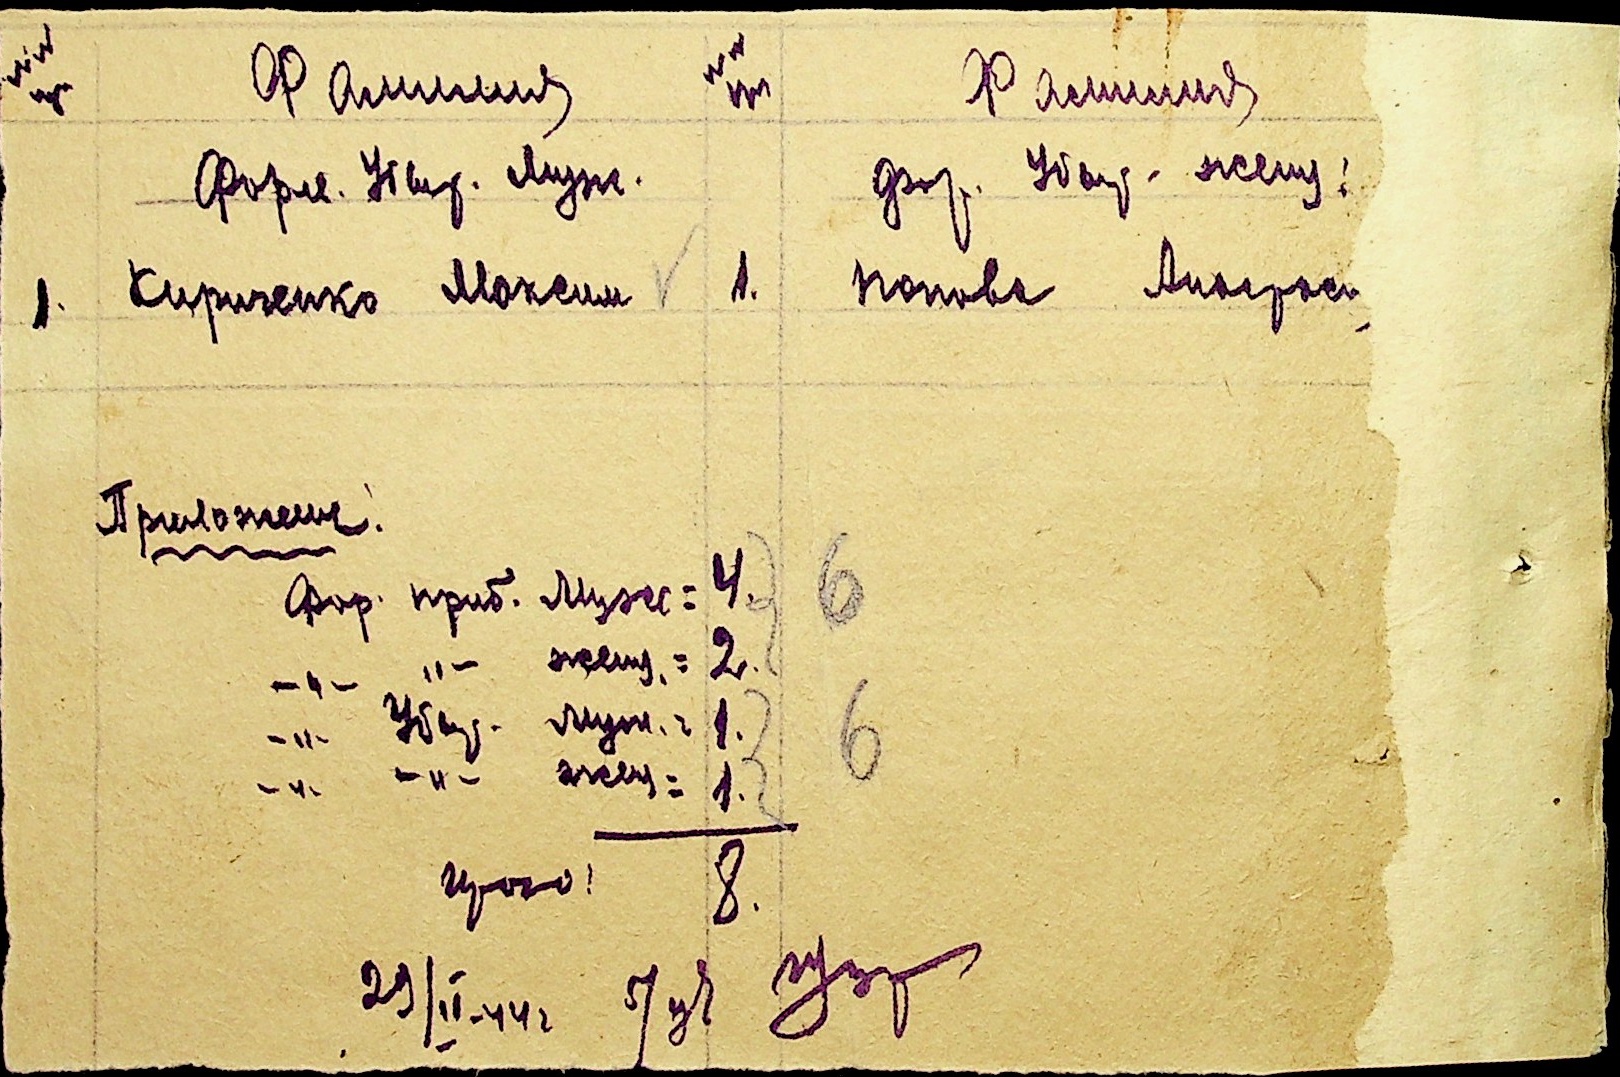 №№ пп Фамилия №№ пп Фамилия
Форм. Убыт. Муж. Фор. Убыт. женщ:
1. Кириченко Максим 1. Попова Анастаси
Приложение:
Фор. приб. Муж = 4. 6
-"- "- женщ. = 2.
-"- Убыт. муж. = 1. 6
-"- -"- женщ = 1.
Итого: 8.
29/II-44г